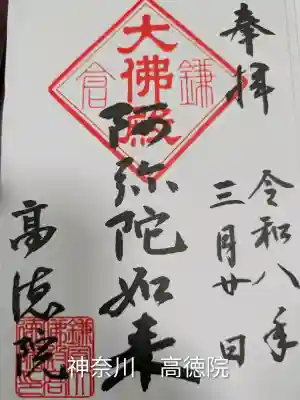 奉拝
令和八年
三月廿日
大佛殿
鎌倉
阿弥陀如来
高徳院
神奈川 高徳院